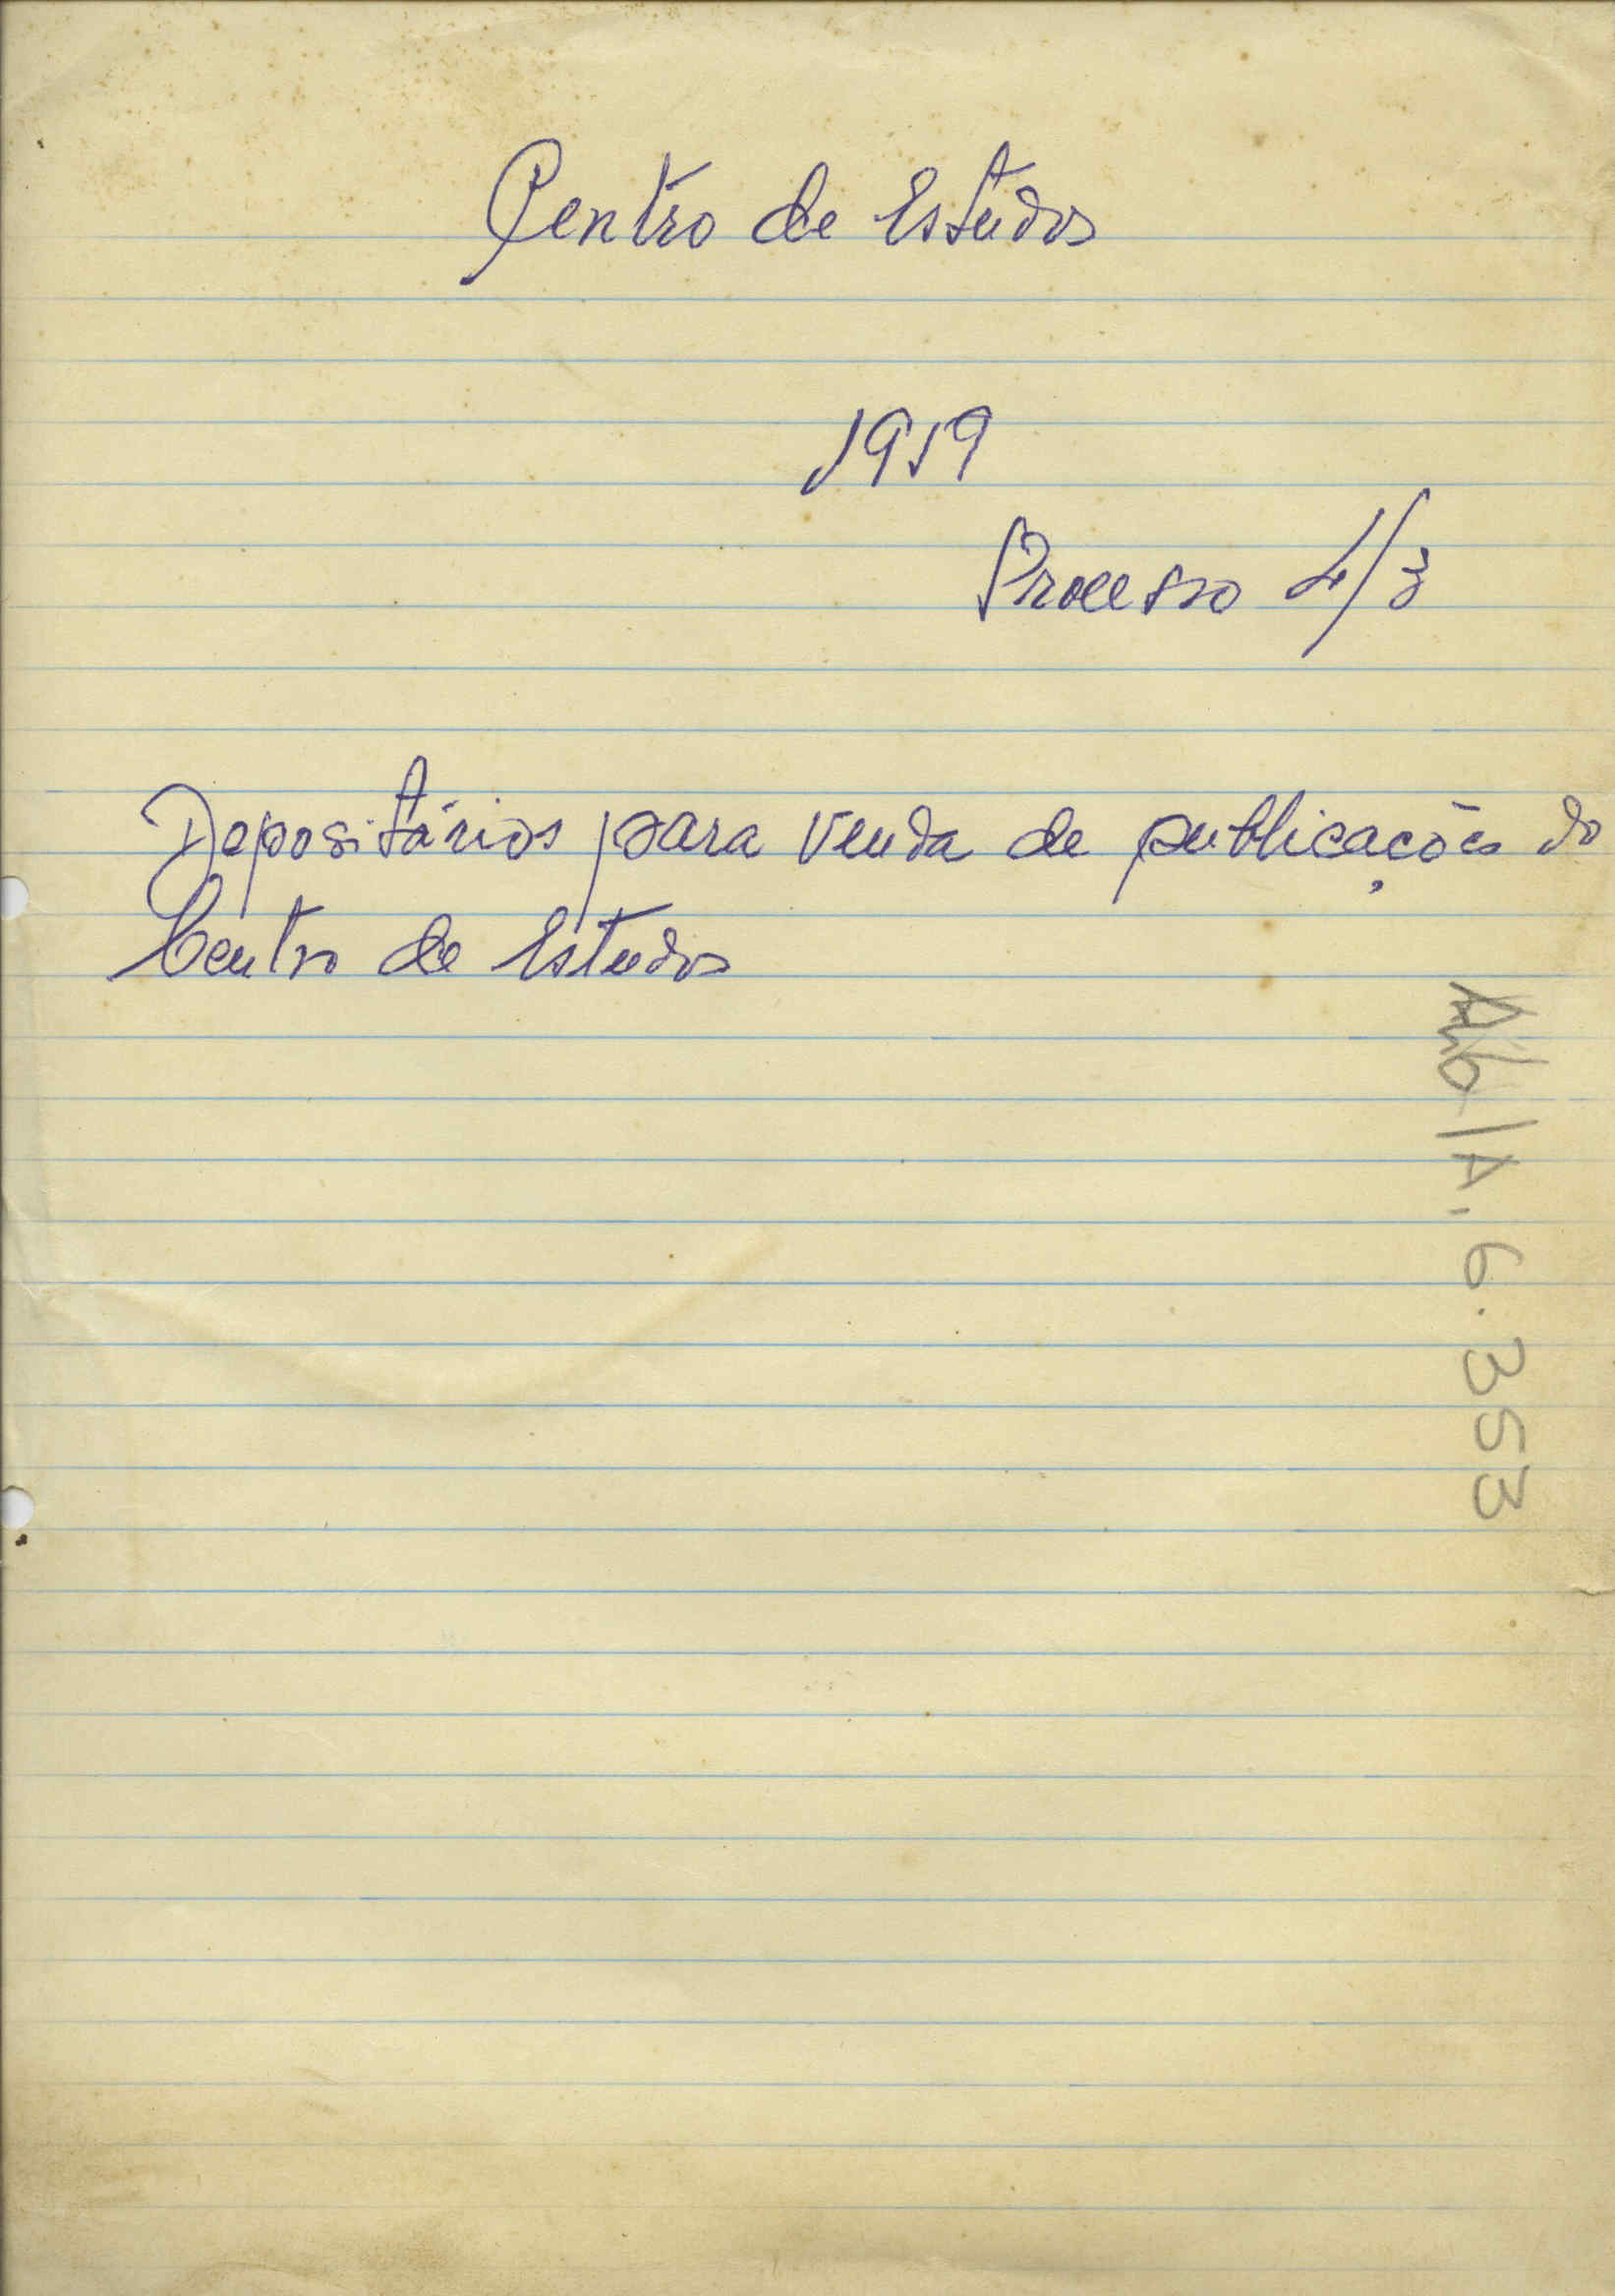 Centro de Estudos
1919
Processo 4/3
Depositários para venda de publicações do
Centro de Estudos
/A. 6. 353